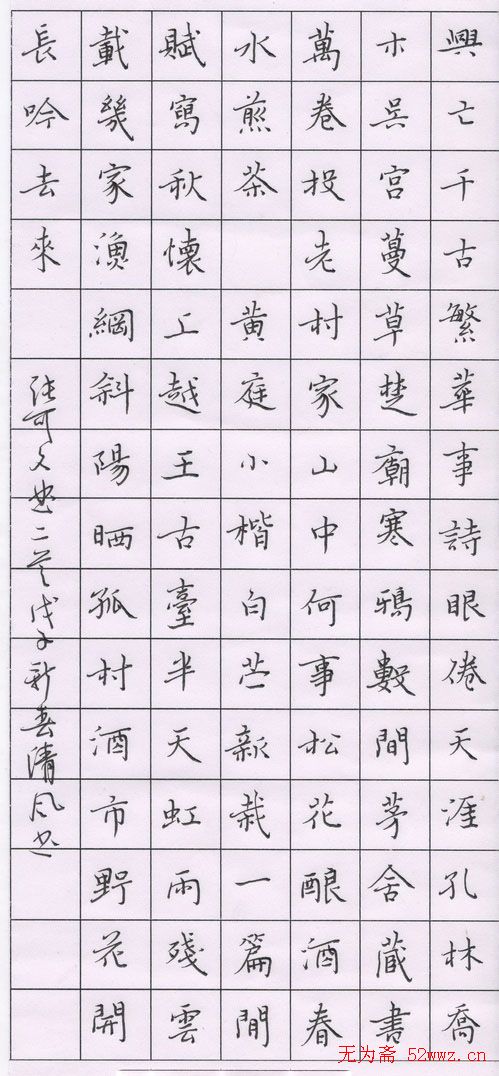 興亡千古繁華事詩眼倦天涯孔林喬
木吳宮蔓草楚廟寒鴉數間茅舍藏書
萬卷投老村家山中何事松花釀酒春
水煎茶 黃庭小楷白苎新裁一篇閒
賦寫秋懷上越王古臺半天虹雨殘雲
載幾家漁網斜陽晒孤村酒市野花開
長吟去來
張可久曲二首戊子新春清風書
无为斋 52wwz.cn